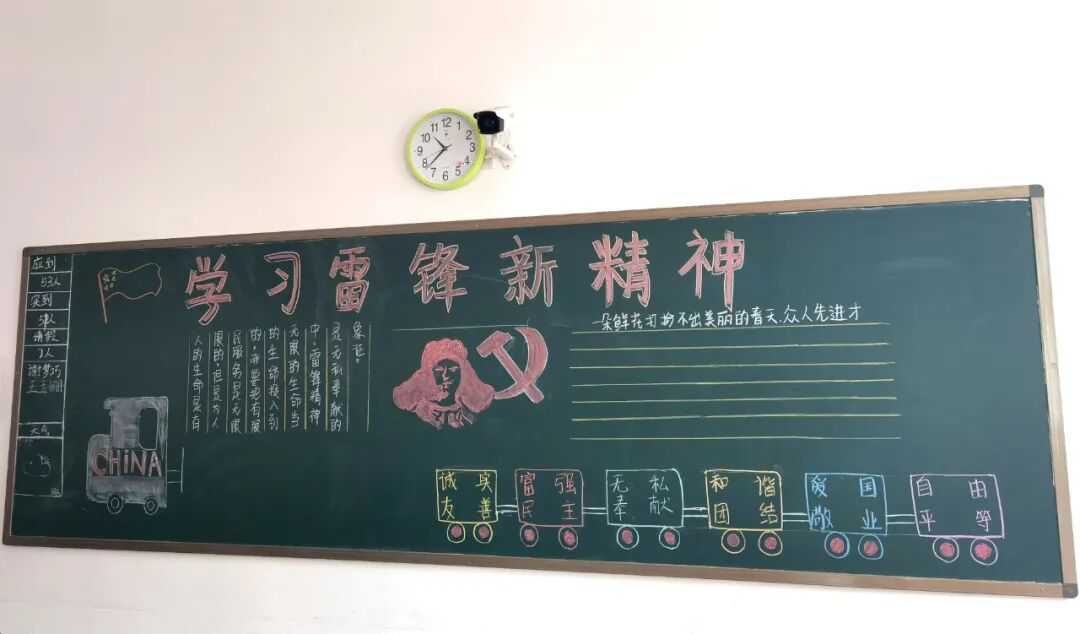 12 1 2 3 4 5 6 7 8 9 10 11
学习雷锋新精神
应到
53人
实到
请假
天气
人的生命是有
限的,但是为人
民服务是无限
的,我要把有限
的生命投入到
无限的生命当
中。雷锋精神
是无私奉献的
象征。
一朵鲜花打扮不出美丽的春天,众人先进才
CHINA
诚实
友善
富强
民主
无私
奉献
和谐
团结
爱国
敬业
自由
平等